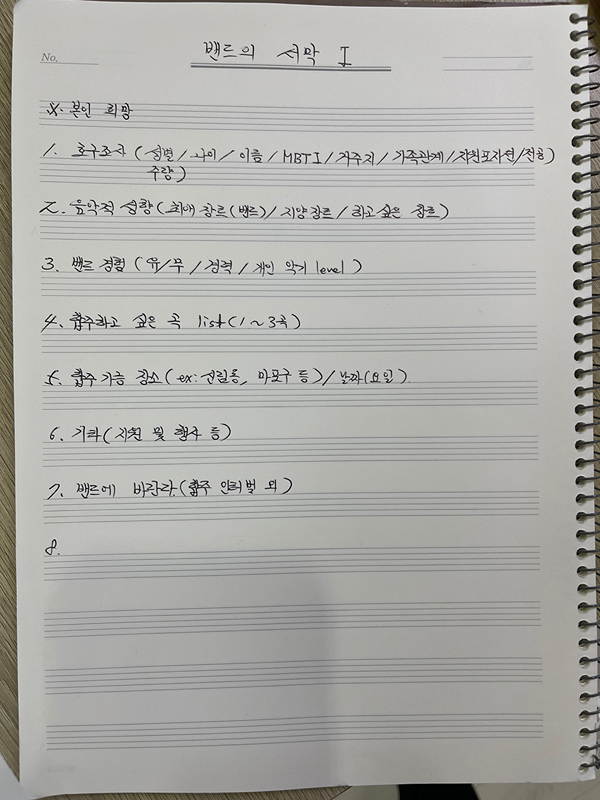 No.
밴드의 서막 I
※. 본인 희망
1. 호구조사 (성별 / 나이 / 이름 / MBTI / 거주지 / 가족관계 / 차원포자연 / 전공)
주량)
2. 음악적 성향 (최애 장르 (밴드) / 지양 장르 / 하고 싶은 장르)
3. 밴드 경험 (유/무 / 경력 / 개인 악기 level)
4. 합주하고 싶은 곡 list (1~3곡)
5. 합주 가능 장소 (ex: 신림동, 마포구 등) / 날짜 (요일)
6. 기타 (지원 및 행사 등)
7. 밴드에 바란다. (합주 인터벌 외)
8.